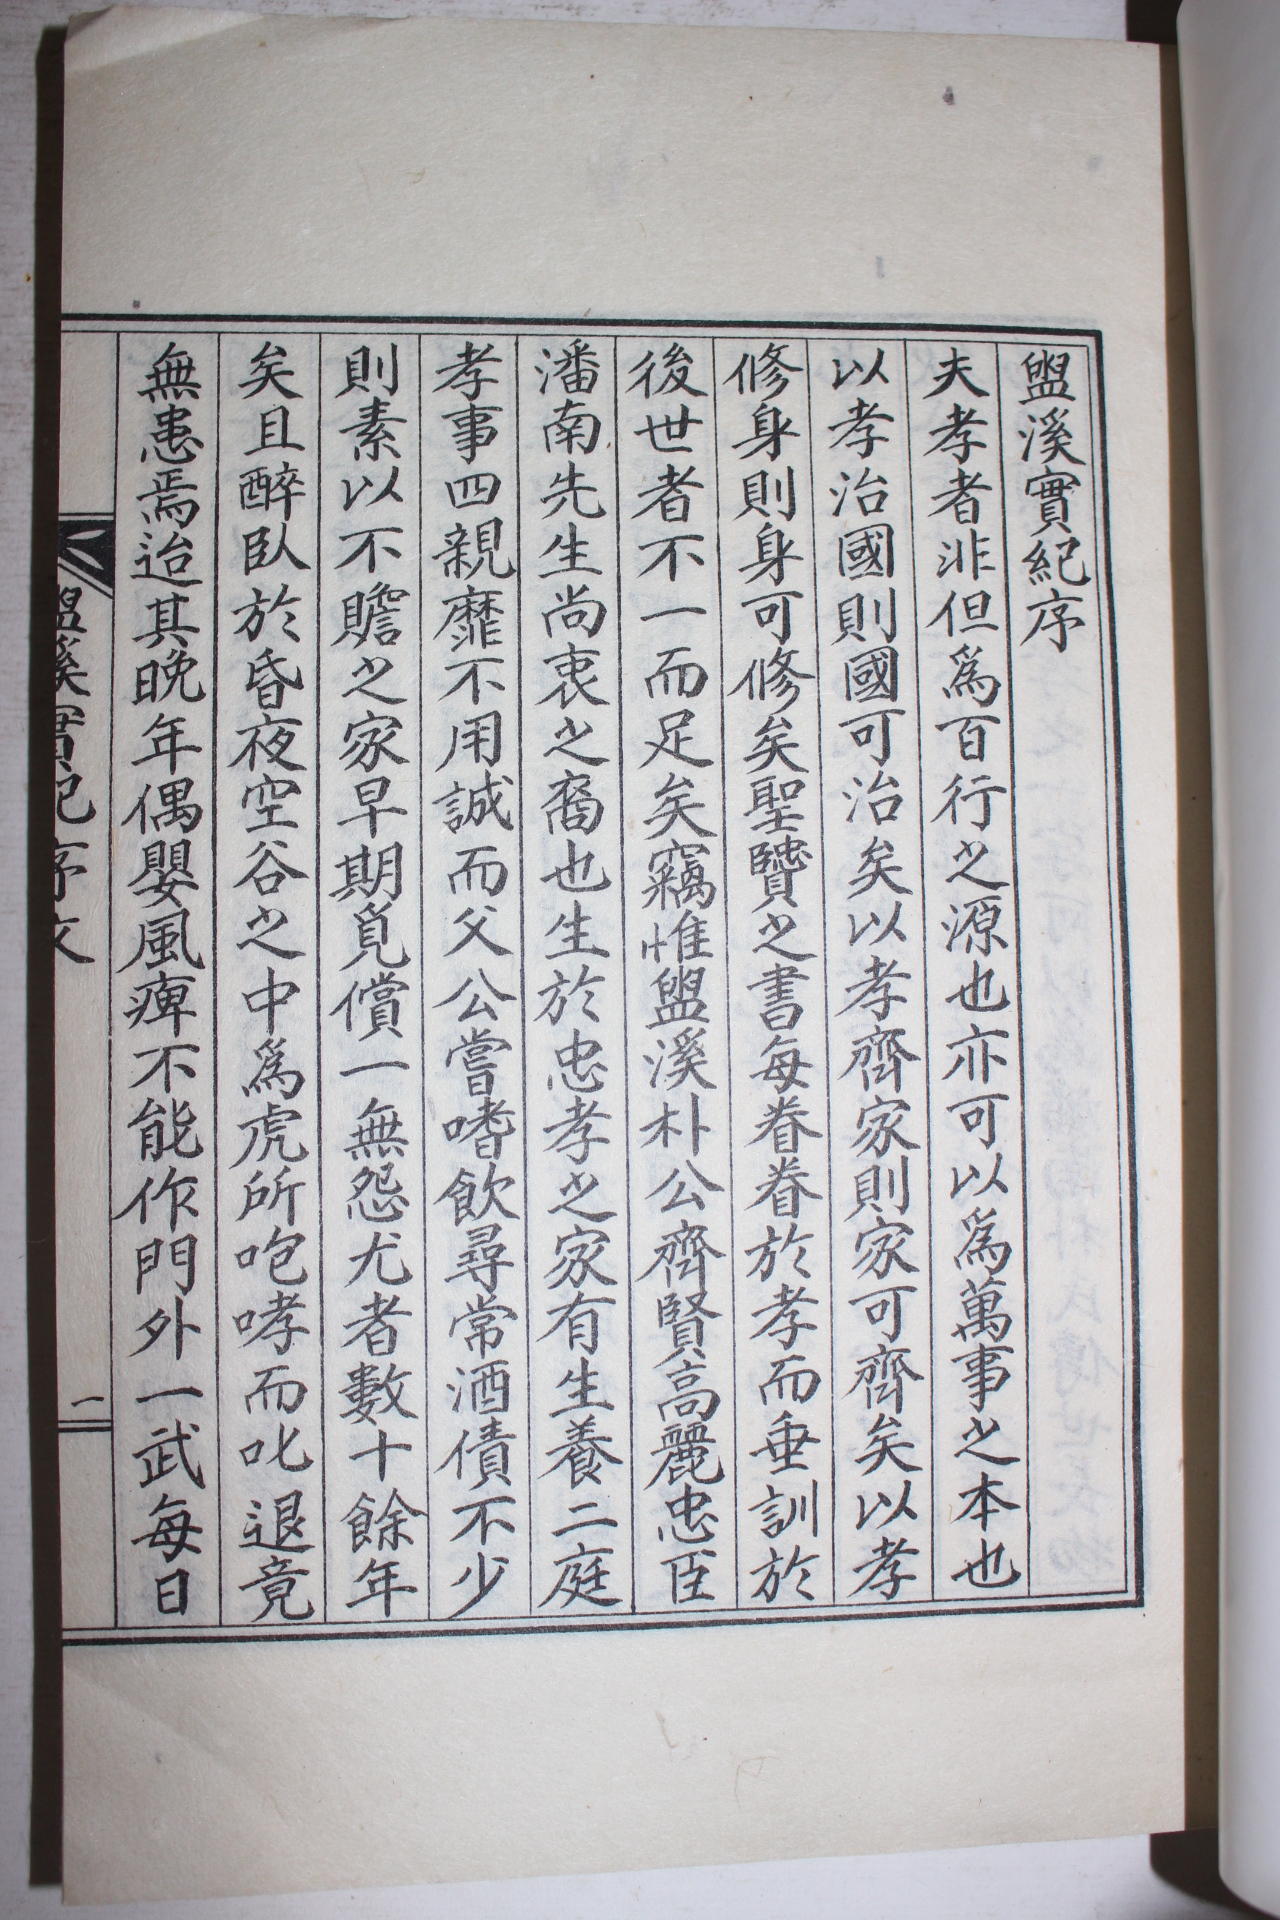 盥溪實紀序
夫孝者非但爲百行之源也亦可以爲萬事之本也
以孝治國則國可治矣以孝齊家則家可齊矣以孝
修身則身可修矣聖贒之書每眷眷於孝而垂訓於
後世者不一而足矣竊惟盥溪朴公齊賢高麗忠臣
潘南先生尚衷之裔也生於忠孝之家有生養二庭
孝事四親靡不用誠而父公嘗嗜飮尋常酒債不少
則素以不贍之家早期覓償一無怨尤者數十餘年
矣且醉臥於昏夜空谷之中爲虎所咆哮而叱退竟
無恙焉迨其晩年偶嬰風痺不能作門外一武每日
盥溪實紀序文
一